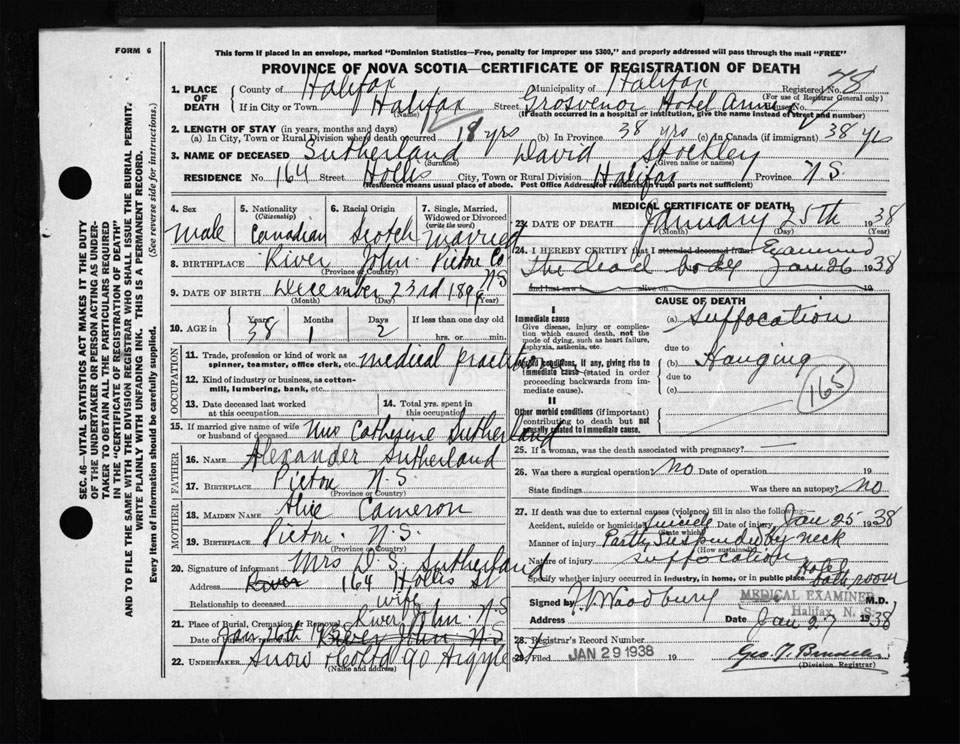 FORM 6
This form if placed in an envelope, marked "Dominion Statistics—Free, penalty for improper use $300," and properly addressed will pass through the mail "FREE"
PROVINCE OF NOVA SCOTIA—CERTIFICATE OF REGISTRATION OF DEATH
1. PLACE OF DEATH
County of Halifax Municipality of Halifax Registered No. 78
(For use of Registrar General only)
If in City or Town Halifax Street Grosvenor Hotel
(Name) (If death occurred in a hospital or institution, give the name instead of street and number)
2. LENGTH OF STAY (in years, months and days)
(a) In City, Town or Rural Division where death occurred 18 yrs (b) In Province 38 yrs (c) In Canada (if immigrant) 38 yrs
3. NAME OF DECEASED Sutherland David Stockley
(Surname) (Given name or names)
RESIDENCE No. 164 Street Hollis City, Town or Rural Division Halifax Province N.S.
(Residence means usual place of abode. Post Office Address for residents in rural parts not sufficient)
4. Sex Male
5. Nationality (Citizenship) Canadian
6. Racial Origin Scotch
7. Single, Married, Widowed or Divorced (write the word) Married
8. BIRTHPLACE River John Pictou Co N S
(Province or Country)
9. DATE OF BIRTH December 23rd 1899
(Month) (Day) (Year)
10. AGE in Years 38 Months 1 Days 2 If less than one day old
hrs. or min.
OCCUPATION
11. Trade, profession or kind of work as spinner, teamster, office clerk, etc. medical
12. Kind of industry or business, as cotton-mill, lumbering, bank, etc.
13. Date deceased last worked at this occupation
14. Total yrs. spent in this occupation
15. If married give name of wife or husband of deceased Catherine Sutherland
FATHER
16. NAME Alexander Sutherland
17. BIRTHPLACE Pictou N.S.
(Province or Country)
MOTHER
18. MAIDEN NAME Alice Cameron
19. BIRTHPLACE Pictou N.S.
(Province or Country)
20. Signature of informant Mrs D. S. Sutherland
Address River 164 Hollis St
Relationship to deceased wife
21. Place of Burial, Cremation or Removal River John N S
Date of Burial or removal Jan 26th 19 River John N S
22. UNDERTAKER Snow 90 Argyle St
(Name and address)
MEDICAL CERTIFICATE OF DEATH
23. DATE OF DEATH January 25th 1938
(Month) (Day) (Year)
24. I HEREBY CERTIFY that I attended deceased from Examined
the dead body Jan 26 1938
and last saw h alive on 19
CAUSE OF DEATH
I
Immediate cause
Give disease, injury or complication which caused death, not the mode of dying, such as heart failure, asphyxia, asthenia, etc.
(a) Suffocation
due to
Morbid conditions, if any, giving rise to immediate cause (stated in order proceeding backwards from immediate cause).
(b) Hanging
due to
(c)
165
II
Other morbid conditions (if important) contributing to death but not causally related to immediate cause.
25. If a woman, was the death associated with pregnancy?
26. Was there a surgical operation? no Date of operation 19
State findings Was there an autopsy? no
27. If death was due to external causes (violence) fill in also the following:
Accident, suicide or homicide? Suicide Date of injury Jan 25 1938
(State which)
Manner of injury Partly suspended by neck
(How sustained)
Nature of injury suffocation
Specify whether injury occurred in industry, in home, or in public place Hotel bath room
Signed by Woodbury M.D.
MEDICAL EXAMINER
Halifax, N. S.
Address Date Jan 27 1938
28. Registrar's Record Number
29. Filed JAN 29 1938 19
(Division Registrar)
SEC. 46—VITAL STATISTICS ACT MAKES IT THE DUTY
OF THE UNDERTAKER OR PERSON ACTING AS UNDER-
TAKER TO OBTAIN ALL THE PARTICULARS REQUIRED
IN THE "CERTIFICATE OF REGISTRATION OF DEATH"
AND TO FILE THE SAME WITH THE DIVISION REGISTRAR WHO SHALL ISSUE THE BURIAL PERMIT.
WRITE PLAINLY WITH UNFADING INK. THIS IS A PERMANENT RECORD.
Every item of information should be carefully supplied. (See reverse side for instructions.)